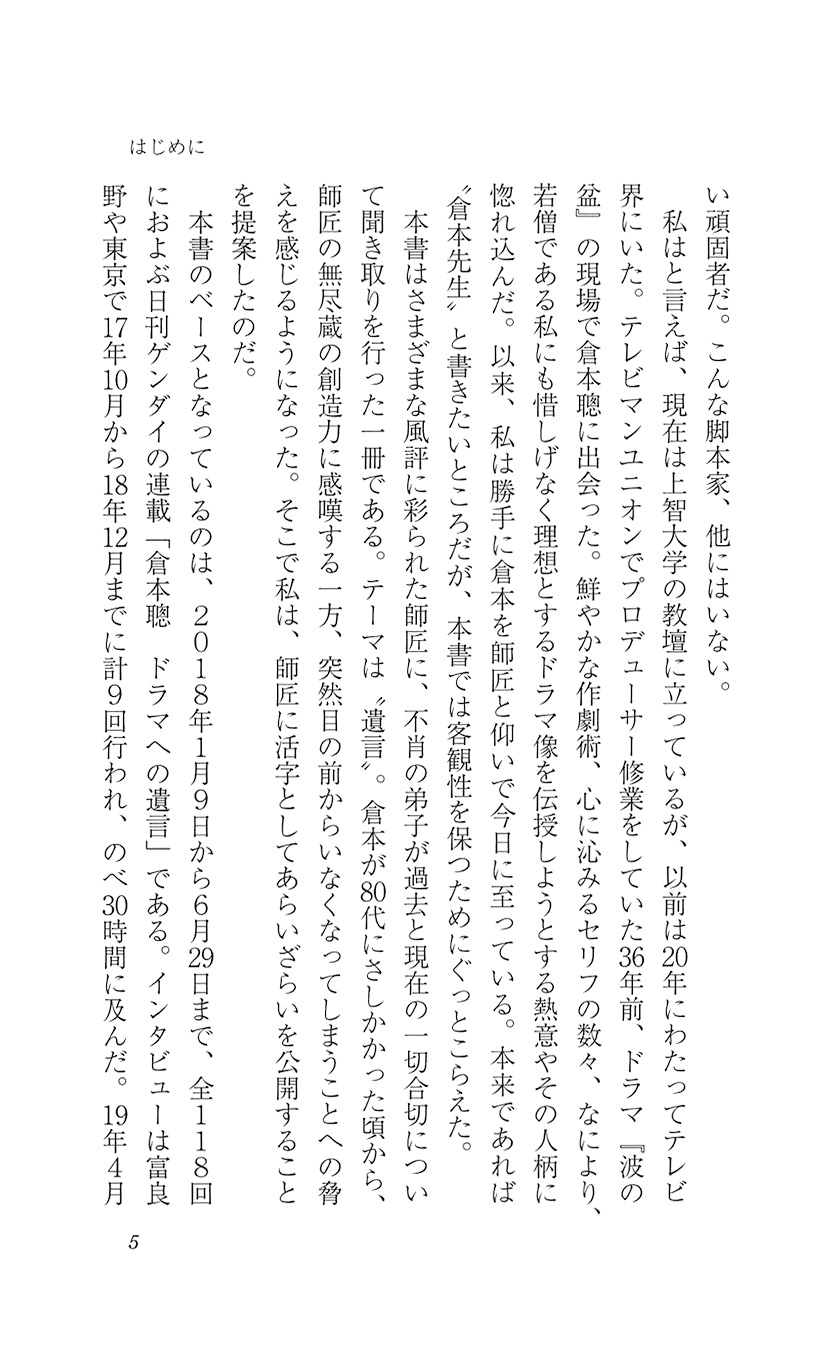 はじめに
い頑固者だ。こんな脚本家、他にはいない。
　私はと言えば、現在は上智大学の教壇に立っているが、以前は20年にわたってテレビ
界にいた。テレビマンユニオンでプロデューサー修業をしていた36年前、ドラマ『波の
盆』の現場で倉本聰に出会った。鮮やかな作劇術、心に沁みるセリフの数々、なにより、
若僧である私にも惜しげなく理想とするドラマ像を伝授しようとする熱意やその人柄に
惚れ込んだ。以来、私は勝手に倉本を師匠と仰いで今日に至っている。本来であれば
〝倉本先生〟と書きたいところだが、本書では客観性を保つためにぐっとこらえた。
　本書はさまざまな風評に彩られた師匠に、不肖の弟子が過去と現在の一切合切につい
て聞き取りを行った一冊である。テーマは〝遺言〟。倉本が80代にさしかかった頃から、
師匠の無尽蔵の創造力に感嘆する一方、突然目の前からいなくなってしまうことへの脅
えを感じるようになった。そこで私は、師匠に活字としてあらいざらいを公開すること
を提案したのだ。
　本書のベースとなっているのは、２０１８年１月９日から６月29日まで、全１１８回
におよぶ日刊ゲンダイの連載「倉本聰　ドラマへの遺言」である。インタビューは富良
野や東京で17年10月から18年12月までに計９回行われ、のべ30時間に及んだ。19年４月
5